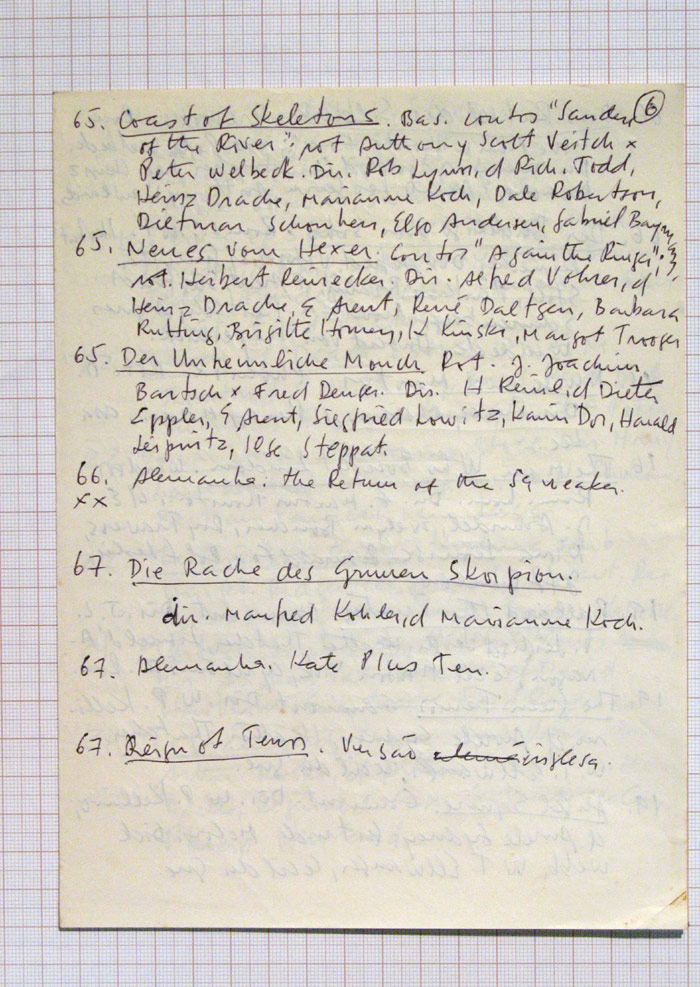 6
65. Coast of Skeletons. Bas. contos "Sanders
of the River". rot Anthony Scott Veitch x
Peter Welbeck. Dir. Rob Lynn, c/ Rich. Todd,
Heinz Drache, Marianne Koch, Dale Robertson,
Dietmar Schonherr, Elga Andersen, Gabriel Baym
65. Neues vom Hexer. Contos "Again the Ringer".
rot. Herbert Reinecker. Dir. Alfred Vohrer, c/
Heinz Drache, E Arent, René Daltgen, Barbara
Rutting, Brigitte Horney, K Kinski, Margot Trooger
65. Der Unheimliche Monch Rot. J. Joachim
Bartsch x Fred Denger. Dir. H Reinl c/ Dieter
Eppler, E Arent, Siegfried Lowitz, Karin Dor, Harald
Leipnitz, Ilse Steppat.
66. Alemanha. the Return of the Sqweaker.
xx
67. Die Rache des Grunen Skorpion.
dir. Manfred Kohler, c/ Marianne Koch.
67. Alemanha. Kate Plus Ten.
67. Reign of Terror. Versão inglesa.